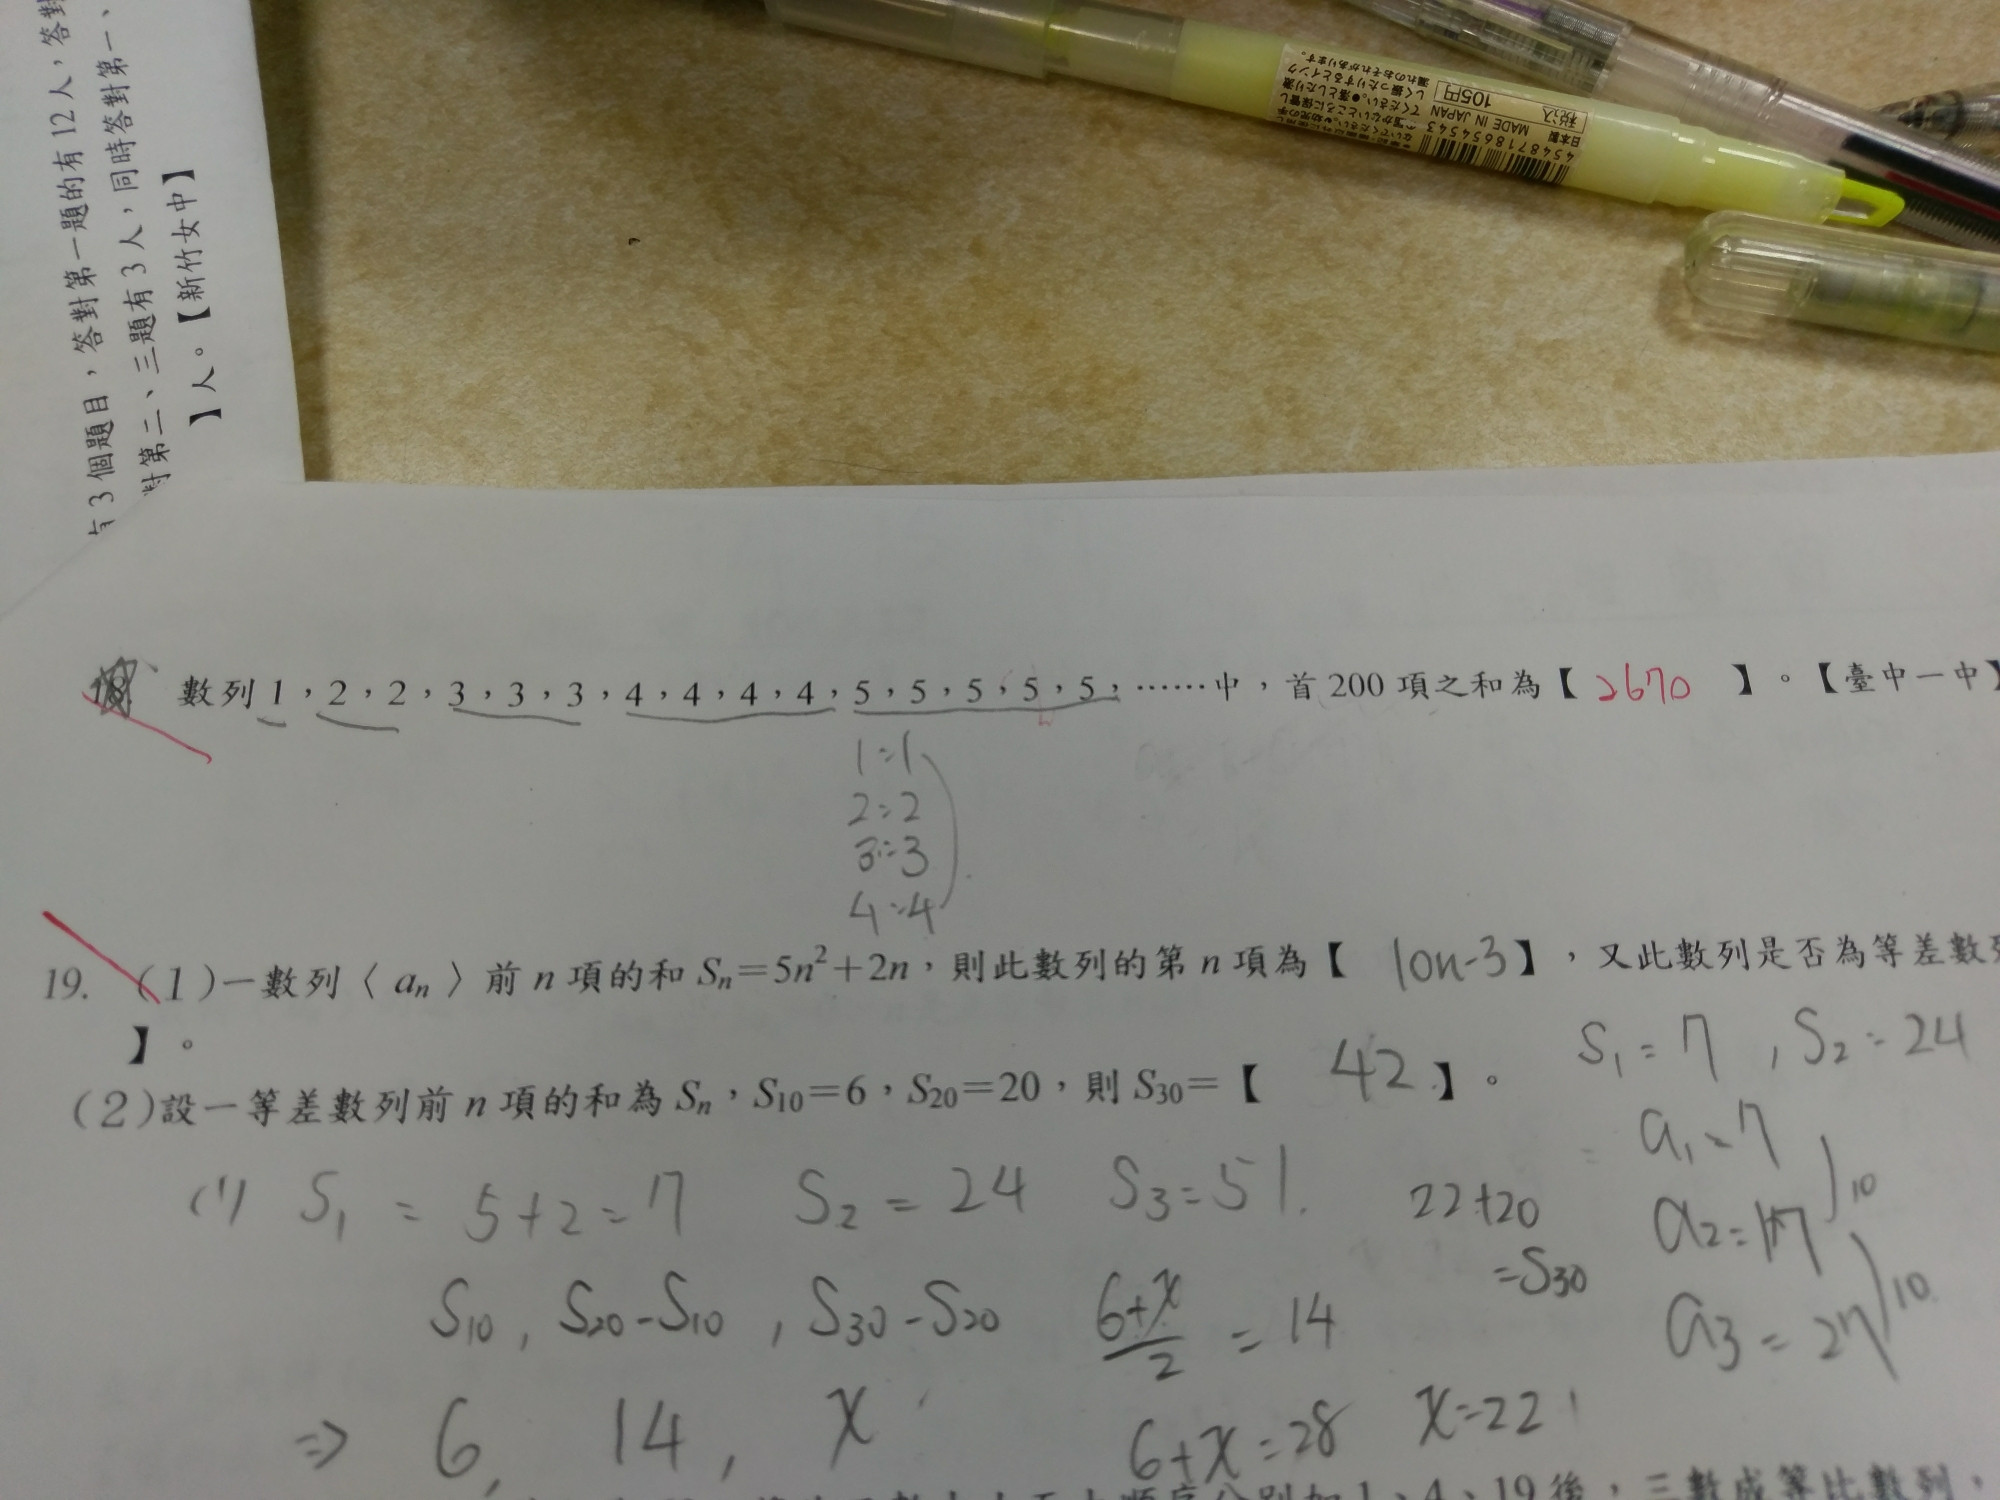 有12人，答對
答對第一題的有12人，答
3個題目，答對第一題的有12人，答對
對第二、三題有3人，同時答對第一、
】人。【新竹女中】
税込 105円
日本製 MADE IN JAPAN
18. 數列1，2，2，3，3，3，4，4，4，4，5，5，5，5，5，……中，首200項之和為【 2670 】。【臺中一中】
1:1
2:2
3:3
4:4
19. (1)一數列〈an〉前n項的和Sn=5n²+2n，則此數列的第n項為【 10n-3】，又此數列是否為等差數列
】。
(2)設一等差數列前n項的和為Sn，S10=6，S20=20，則S30=【 42 】。
S1=7，S2=24
a1=7
a2=17
10
a3=27
10
(1) S1=5+2=7 S2=24 S3=51.
22+20
=S30
S10, S20-S10, S30-S20
6+x/2=14
⇒ 6, 14, x
6+x=28 x=22
1、4、19後，三數成等比數列，